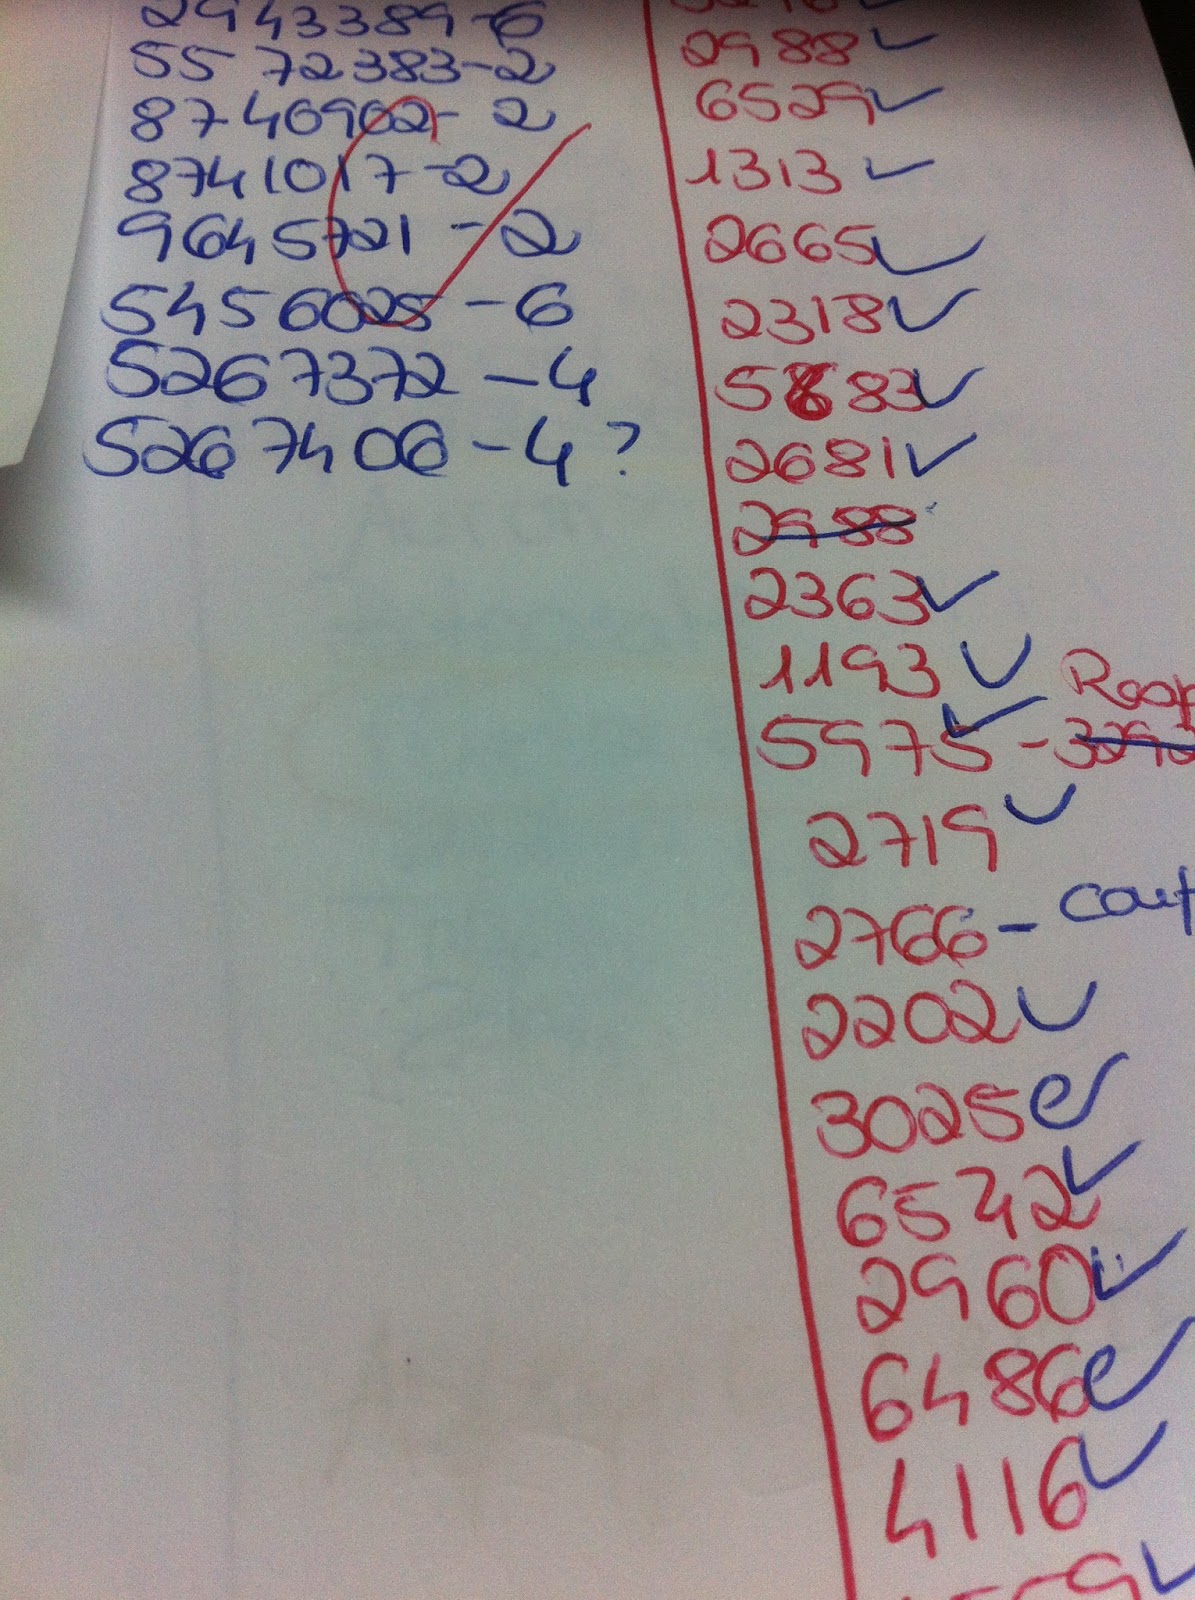 2943389-6
5572383-2
8740902-2
8741017-2
9645721-2
5456025-6
5267372-4
5267406-4?
2988
6529
1313
2665
2318
5683
2681
2988
2363
1193
5975-3292
2719
2766-
2202
3025
6542
2960
6486
4116